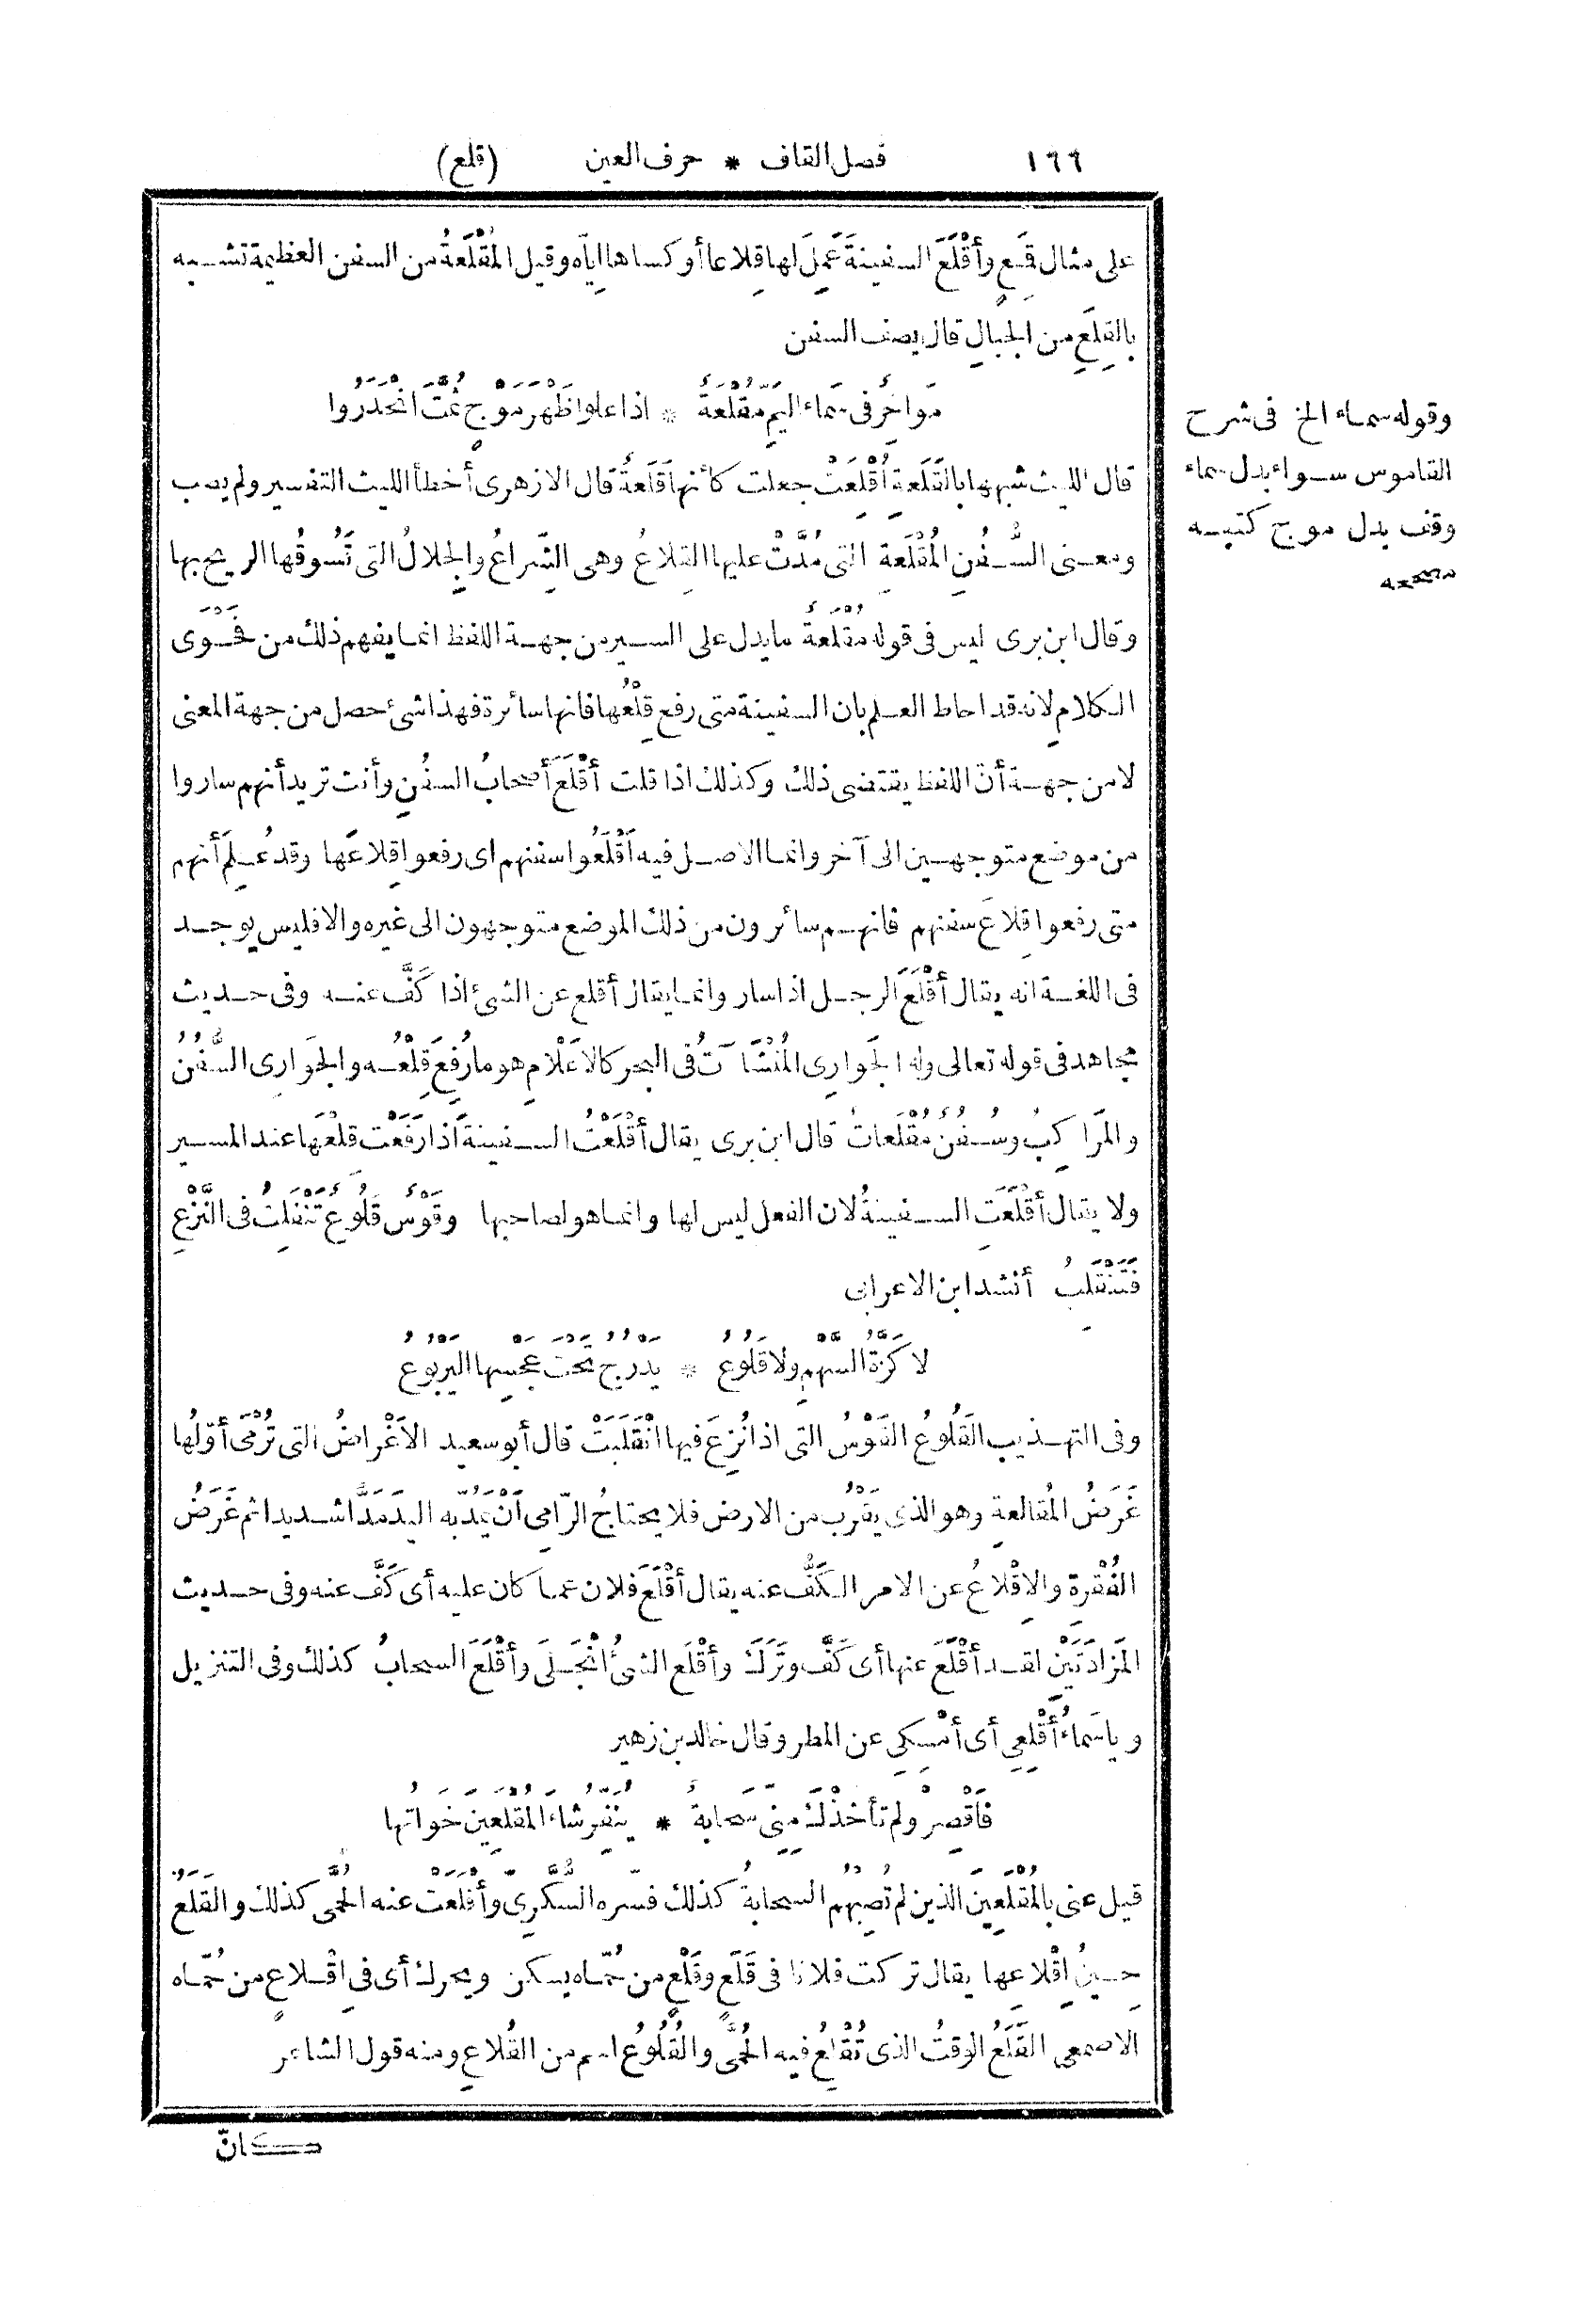 ١٦٦ فصل القاف * حرف العين (قلع)
على مثال قِمَعٍ وأَقْلَعَ السفينةَ عَمِلَ لها قِلاعا أو كساها اياه وقيل المُقْلَعةُ من السفن العظيمة تشبه
بالقِلَعِ من الجبالِ قال يصف السفن
مَواخِرٌ فى سَماء اليَمِّ مُقْلَعةٌ * اذا علوا ظَهْرَ مَوْجٍ ثُمَّتَ انْحَدَرُوا
قال الليث شبهها بالقَلَعةِ أُقْلِعَتْ جعلت كأنها قَلَعةٌ قال الازهرى أخطأ الليث التفسير ولم يصب
ومعنى السُّفُنِ المُقْلَعةِ التى مُدَّتْ عليها القِلاعُ وهى الشِّراعُ والجِلالُ التى تَسُوقُها الريح بها
وقال ابن برى ليس فى قوله مُقْلَعةٌ ما يدل على السير من جهة اللفظ انما يفهم ذلك من فَحْوَى
الكلامِ لانه قد احاط العلم بان السفينة متى رفع قِلْعُها فانها سائرة فهذا شئ حصل من جهة المعنى
لا من جهة أن اللفظ يقتضى ذلك وكذلك اذا قلت أَقْلَعَ أصحابُ السفُنِ وأنت تريد أنهم ساروا
من موضع متوجهين الى آخر وانما الاصل فيه أَقْلَعُوا سفنهم اى رفعوا قِلاعَها وقد عُلِمَ أنهم
متى رفعوا قِلاعَ سفنهم فانهم سائرون من ذلك الموضع متوجهون الى غيره والا فليس يوجد
فى اللغة انه يقال أَقْلَعَ الرجل اذا سار وانما يقال أقلع عن الشئ اذا كَفَّ عنه وفى حديث
مجاهد فى قوله تعالى وله الجَوارِى المُنْشَآتُ فى البحر كالاَعْلامِ هو ما رُفِعَ قِلْعُه والجَوارِى السُّفُنُ
والمَراكِبُ وسُفُنٌ مُقْلَعاتٌ قال ابن برى يقال أَقْلَعْتُ السفينةَ اذا رَفَعْتَ قلْعَها عند المسير
ولا يقال أَقْلَعَتِ السفينةُ لان الفعل ليس لها وانما هو لصاحبها وقَوْسٌ قَلُوعٌ تَنْفَلِتُ فى النَّزْعِ
فَتَنْقَلِبُ أنشد ابن الاعرابى
لا كَزّةُ السَّهْمِ ولا قَلُوعُ * يَدْرُجُ تَحْتَ عَجْسِها اليَرْبُوعُ
وفى التهذيب القَلُوعُ القَوْسُ التى اذا نُزِعَ فيها انْقَلَبَتْ قال أبو سعيد الاَغْراضُ التى تُرْمَى أوّلُها
غَرَضُ المُقالعةِ وهو الذى يَقْرُب من الارض فلا يحتاجُ الرّامِى أَنْ يَمُدّ به اليدَ مَدًّا شديدا ثم غَرَضُ
الفُقْرةِ والاِقْلاعُ عن الامر الكَفُّ عنه يقال أَقْلَعَ فلان عما كان عليه أى كَفَّ عنه وفى حديث
المَزادَتَيْنِ لقد أَقْلَعَ عنها أى كَفَّ وتَرَكَ وأَقْلَع الشئُ انْجَلَى وأَقْلَعَ السحابُ كذلك وفى التنزيل
ويا سَماءُ أَقْلِعِى أى أَمْسِكِى عن المطر وقال خالد بن زهير
فَأَقْصِرْ ولم تأخذْكَ مِنِّى سَحابةٌ * يُنَفِّرُ شاءَ المُقْلَعِينَ خَواتُها
قيل عنى بالمُقْلَعِينَ الذين لم تُصِبْهُم السحابةُ كذلك فسّره السُّكَّرِىّ وأَقْلَعَتْ عنه الحُمَّى كذلك والقَلَعُ
حِينُ إِقْلاعِها يقال تركت فلانا فى قَلَعٍ وقَلْعٍ من حُمّاه يسكن ويحرك أى فى اِقْلاعٍ من حُمّاه
الاصمعى القَلَعُ الوقتُ الذى تُقْلِعُ فيه الحُمَّى والقُلُوعُ اسم من القُلاعِ ومنه قول الشاعر
كانّ
وقوله سماء الخ فى شرح
القاموس سواء بدل سماء
وقف بدل موج كتبه
مصححه